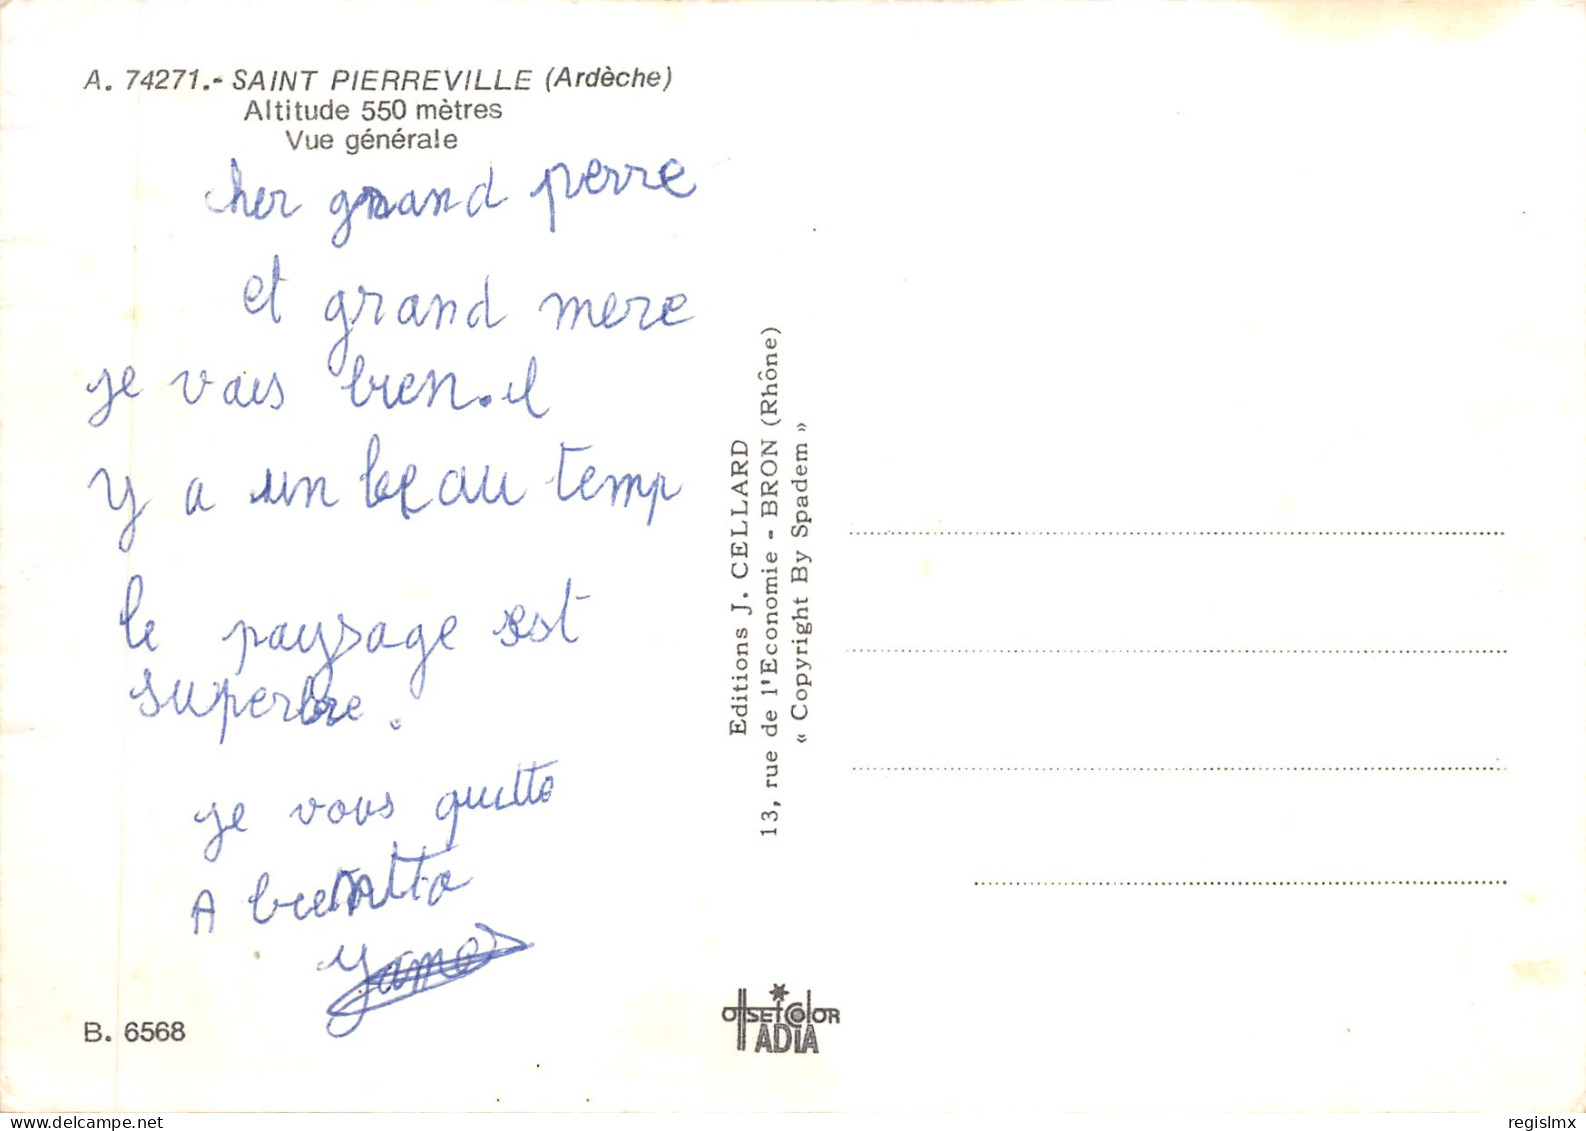 A. 74271.- SAINT PIERREVILLE (Ardèche)
Altitude 550 mètres
Vue générale
cher grand perre
et grand mere
je vais bien. il
y a un beau temp
le paysage est
superbe.
je vous quitte
A bientto
Editions J. CELLARD
13, rue de l'Economie - BRON (Rhône)
« Copyright By Spadem »
B. 6568
OffsEtColoR
ADIA
regislmx